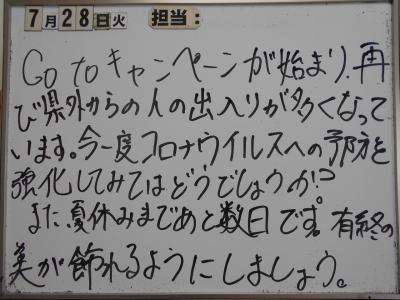 7月28日火 担当:
Go toキャンペーンが始まり、再
び県外からの人の出入りが多くなって
います。今一度コロナウイルスへの予防を
強化してみてはどうでしょうか?
また、夏休みまであと数日です。有終の
美が飾れるようにしましょう。